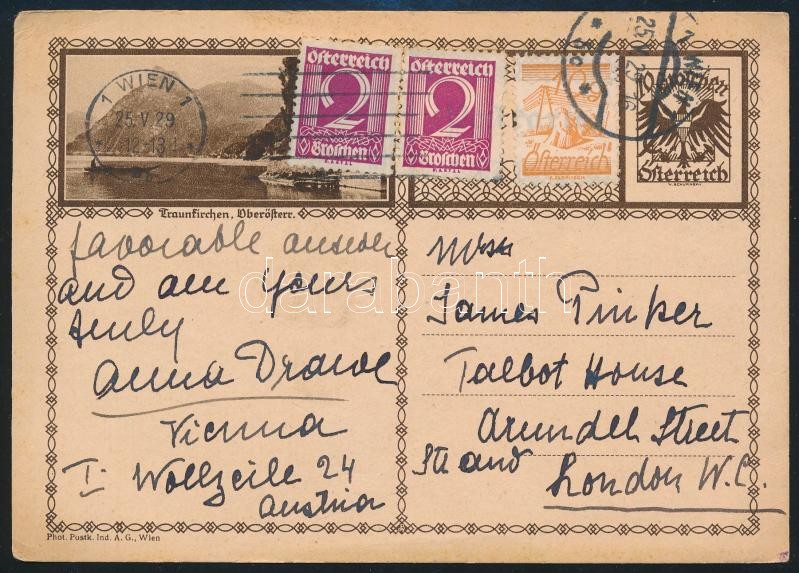 1 WIEN 1
25.V.29
12-13
Österreich
2
Groschen
Österreich
2
Groschen
Österreich
10 Groschen
Österreich
Traunkirchen, Oberösterr.
favorable answer
and am yours
truly
Anna Drawe
Vienna
I. Wollzeile 24
Austria
Messrs
James Pinker
Talbot House
Arundel Street
Strand
London W.C.
darabanth
Phot. Postk. Ind. A. G., Wien